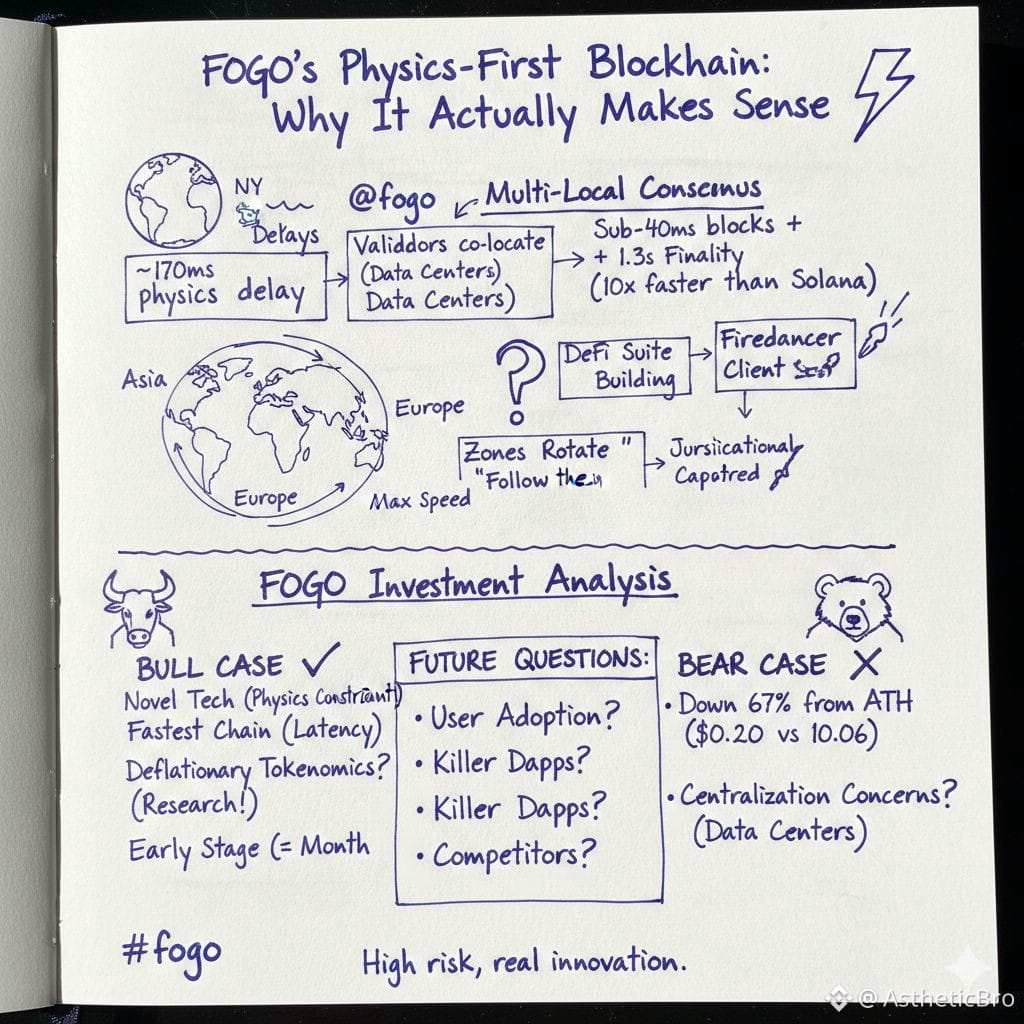 FOGO's Physics-First Blockhain:
Why It Actually Makes Sense
NY
Delays
~170ms
physics delay
@fogo
Validdors co-locate
(Data Centers)
Data Centers)
Multi-Local Consemus
Sub-40ms blocks +
+ 1.3s Finality
(10x faster than Solana)
Asia
Europe
Europe
Max Speed
?
DeFi Suite
Building
Firedancer
Client
Zones Rotate "
"Follow the
Jursiicational
Capotred
FOGO Investment Analysis
BULL CASE ✓
Novel Tech (Physics Constriant)
Fastest Chain (Latency)
Deflationary Tokenomics?
(Research!)
Early Stage (= Month
FUTURE QUESTIONS:
• User Adoption?
• Killer Dapps?
• Killer Dapps?
• Competitors?
BEAR CASE X
• Down 67% from ATH
($0.20 vs 10.06)
• Centralization Concerns?
(Data Centers)
#fogo
High risk, real innovation.
@ AstheticBro